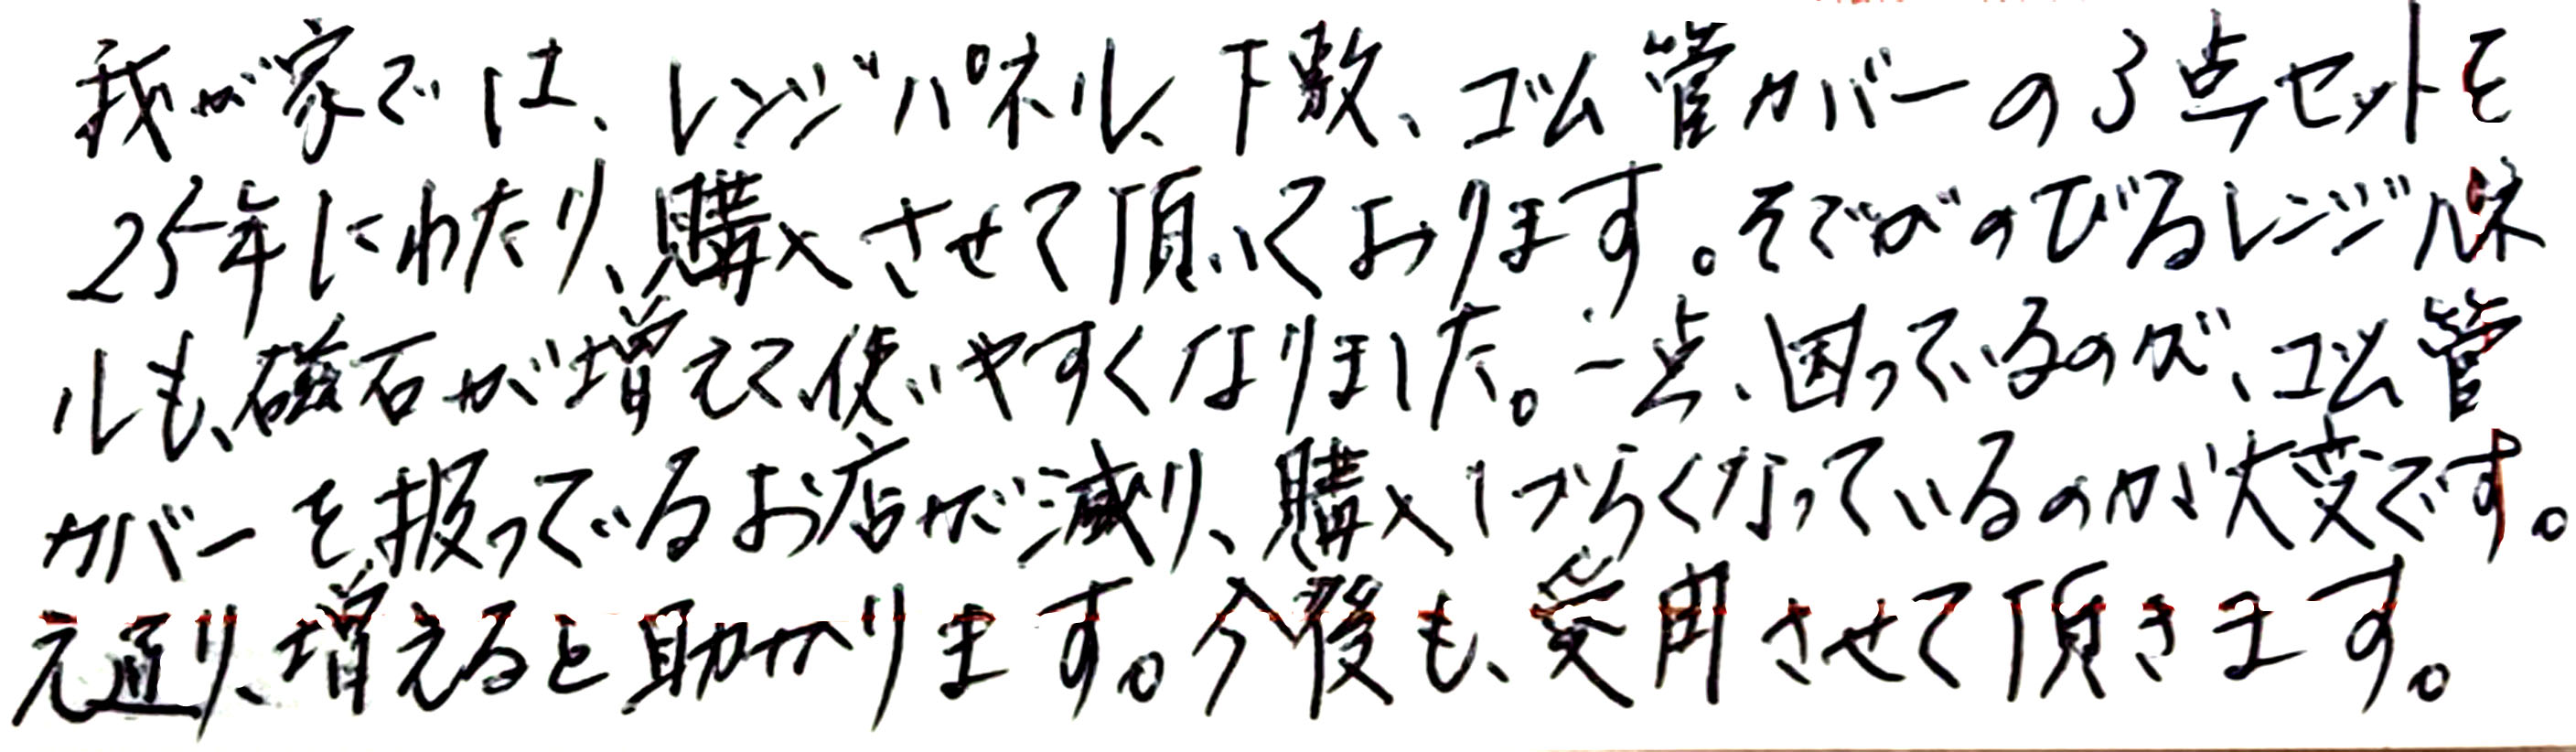 我が家では、レンジパネル、下敷、ゴム管カバーの3点セットを
25年にわたり、購入させて頂いております。そでがのびるレンジパネ
ルも、磁石が増えて、使いやすくなりました。一点、困っているのが、ゴム管
カバーを扱っているお店が減り、購入しづらくなっているのが大変です。
元通り、増えると助かります。今後も、愛用させて頂きます。